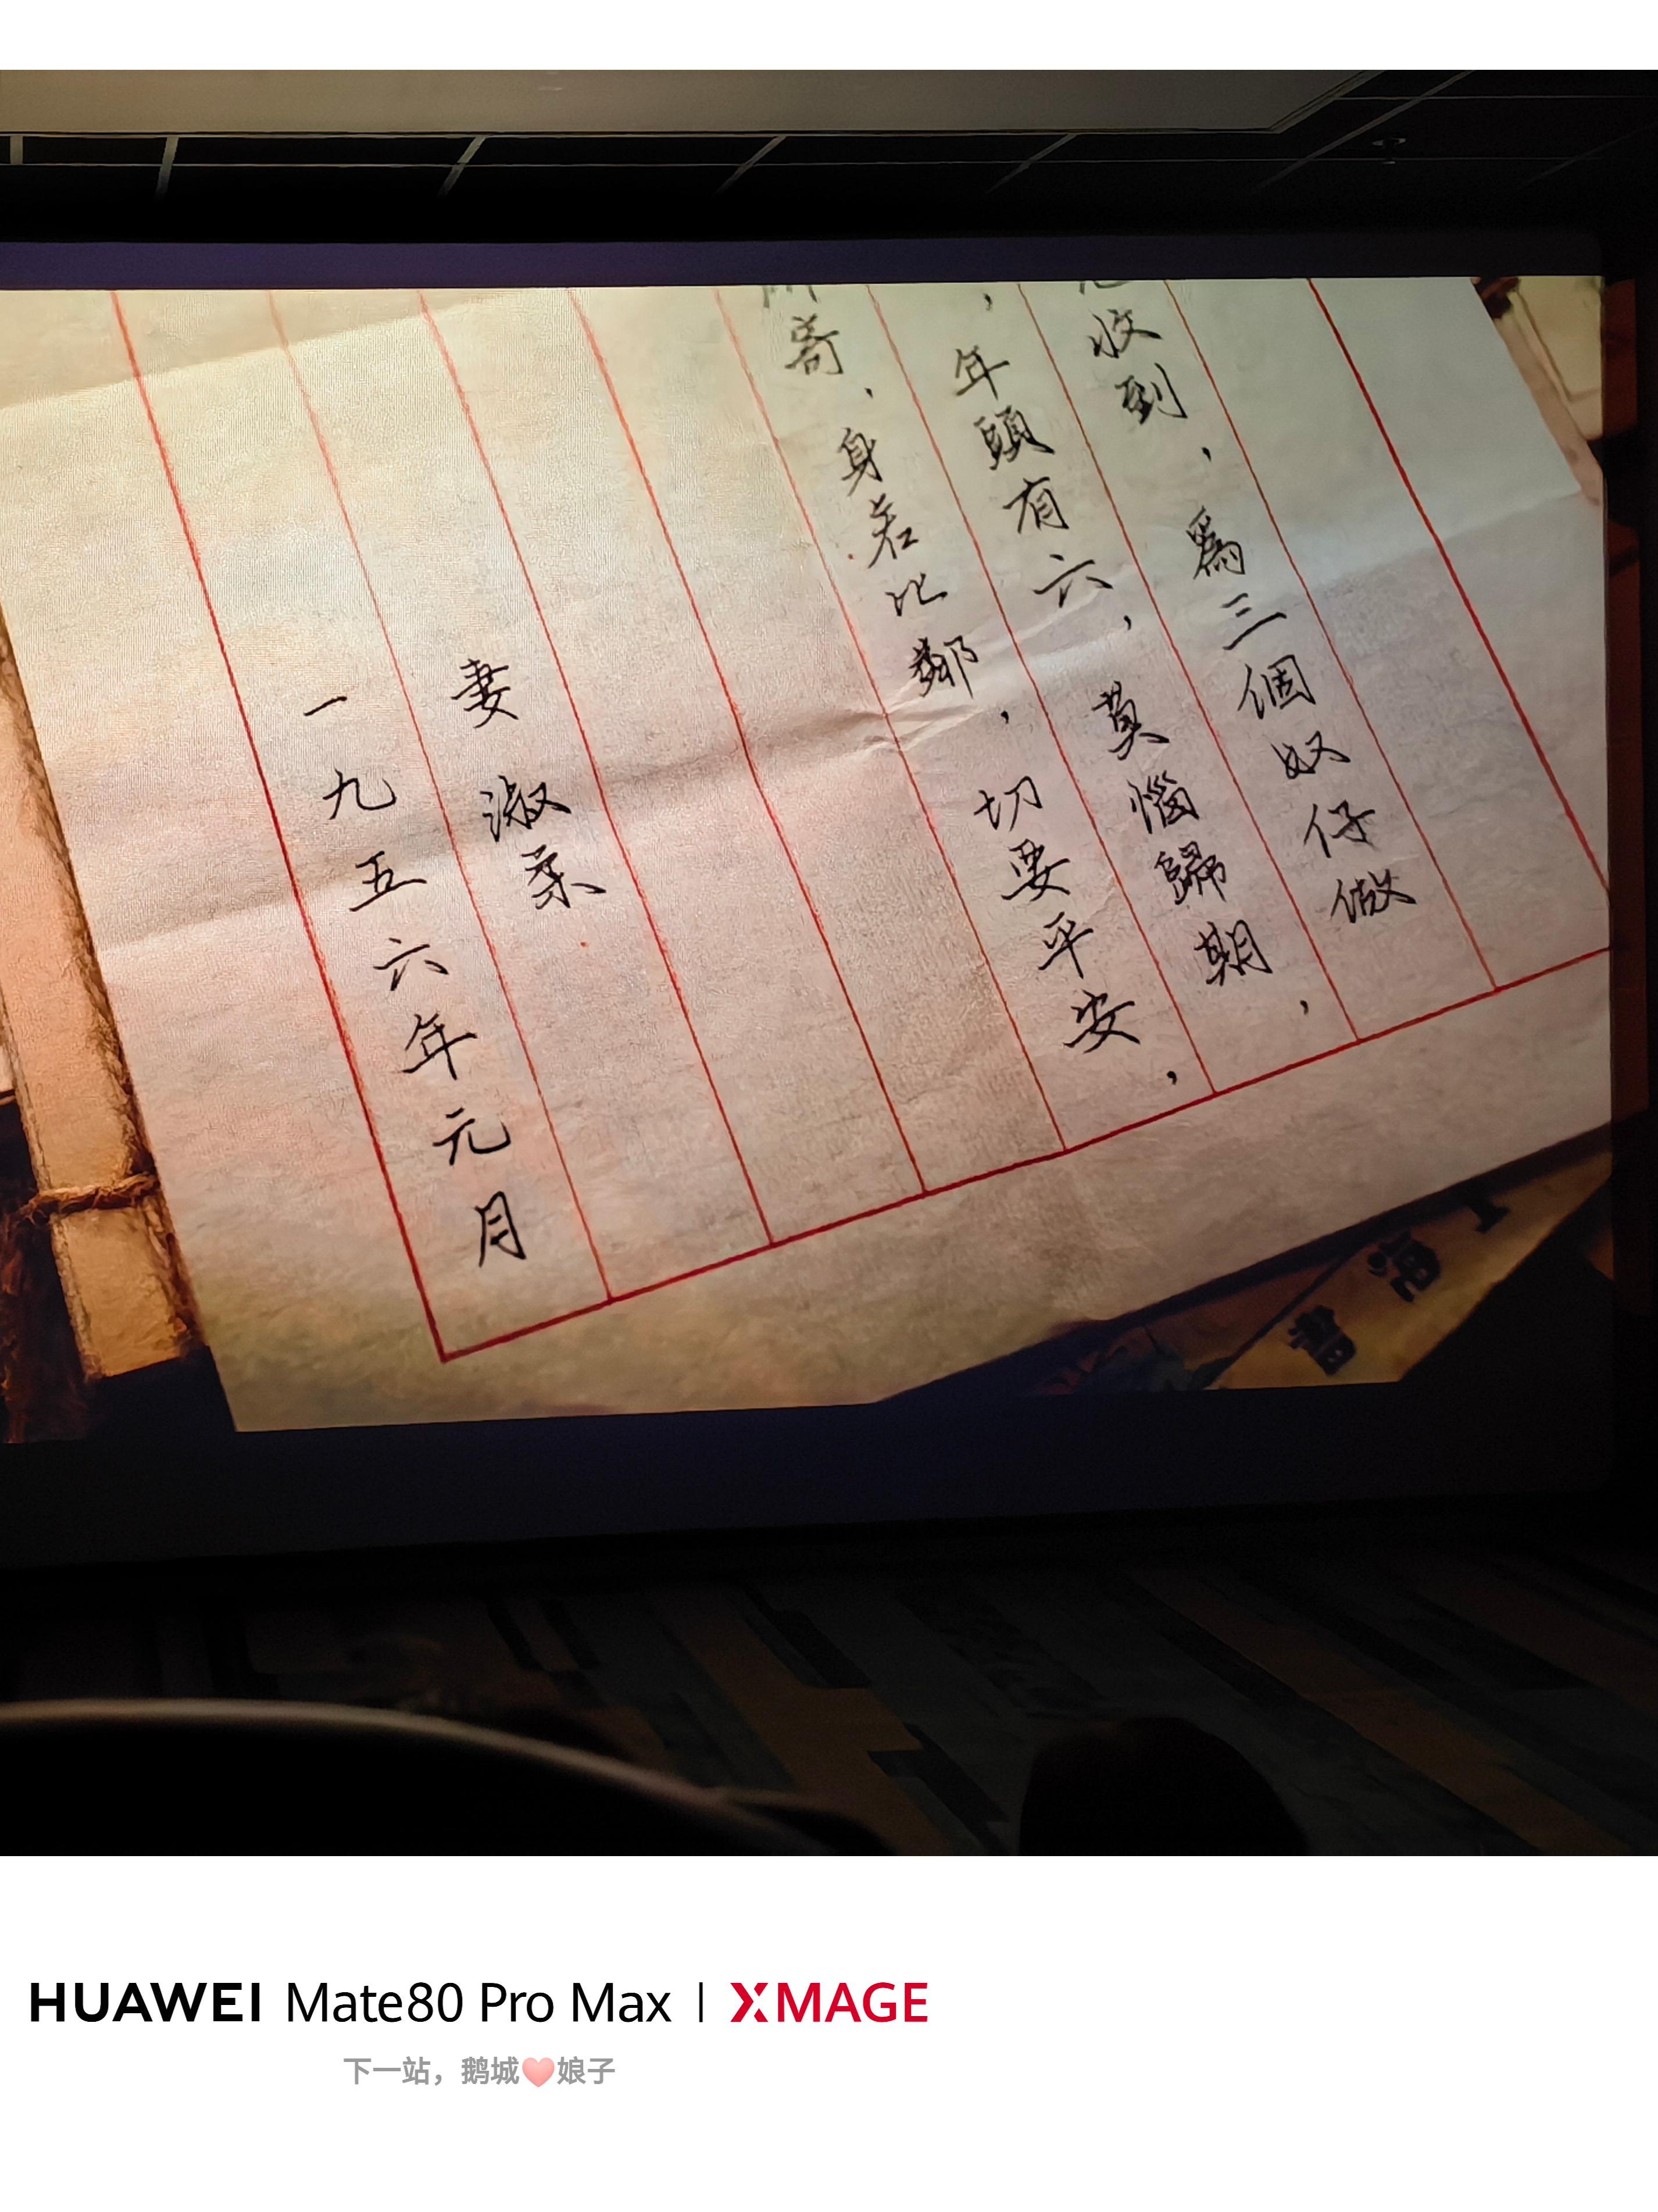 收到，為三個奴仔做
，年頭有六，莫惱歸期，
寄，身若比鄰，切要平安，
妻 淑柔
一九五六年元月
HUAWEI Mate80 Pro Max | XMAGE
下一站，鹅城❤娘子